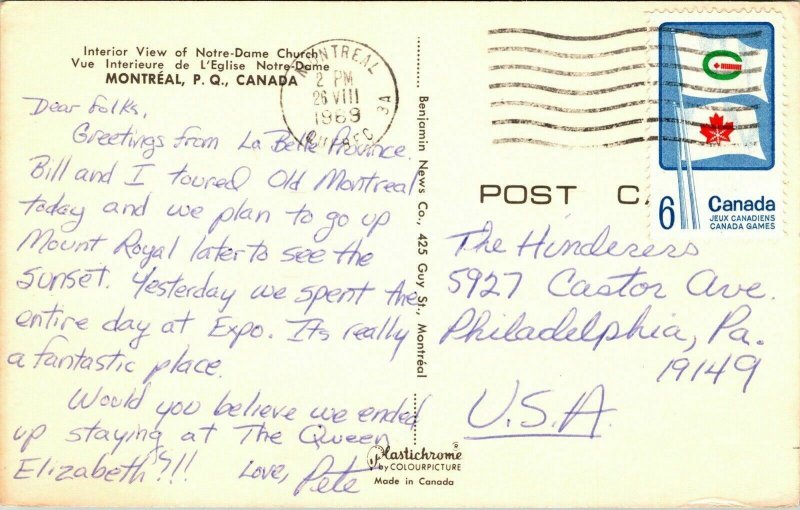 Interior View of Notre-Dame Church
Vue Interieure de L'Eglise Notre-Dame
MONTRÉAL, P. Q., CANADA
Dear Folks,
Greetings from La Belle Province.
Bill and I toured Old Montreal
today and we plan to go up
Mount Royal later to see the
sunset. Yesterday we spent the
entire day at Expo. Its really
a fantastic place.
Would you believe we ended
up staying at The Queen
Elizabeth?!!!
Love, Pete
MONTREAL
2 PM
26 VIII
1969
Benjamin News Co., 425 Guy St., Montréal
Plastichrome®
by COLOURPICTURE
Made in Canada
POST CA
6 Canada
JEUX CANADIENS
CANADA GAMES
The Hinderers
5927 Castor Ave.
Philadelphia, Pa.
19149
U.S.A.